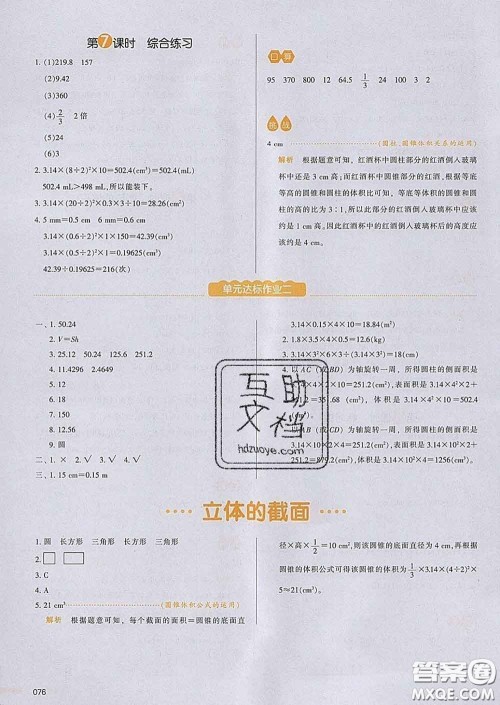 第7课时 综合练习
1. (1)219.8 157
(2)9.42
(3)360
(4)2/3 2倍
(5)24
(6)3
2. 3.14×(8÷2)²×10=502.4(cm³)=502.4(mL)
502.4 mL>498 mL,所以能装下。
3. 3.14×(20÷2)²×0.3×3÷10=28.26(cm²)
4. 5 mm=0.5 cm 6 mm=0.6 cm
3.14×(0.6÷2)²×1×150=42.39(cm³)
3.14×(0.5÷2)²×1=0.19625(cm³)
42.39÷0.19625=216(次)
口算
95 370 800 12 64.5 1/3 24 100 3 2
挑战
4 cm (圆柱、圆锥体积关系的运用)
解析 根据题意可知，红酒杯中圆柱部分的红酒倒入玻璃
杯中还是3 cm高；而红酒杯中圆锥部分的红酒，根据等底
等高的圆锥和圆柱的体积比可知，等底等高的圆柱与圆锥
的体积比为3∶1,所以此部分的红酒倒入玻璃杯中应该
约是1 cm高。因此红酒杯中的红酒倒入玻璃杯后的高度应
该约是4 cm。
单元达标作业二
一、1. 50.24
2. V=Sh
3. 25.12 50.24 125.6 251.2
4. 11.4296 4.2849
6. 15
7. 18
8. 12.56
9. 圆
二、1. × 2. √ 3. √ 4. √
三、1. 15 cm=0.15 m
3.14×0.15×4×10=18.84(m²)
2. 1.8×3.5×4×0.5=12.6(kg)
3. 3.14×3²×6×3÷(3.14×3²)=18(cm)
4. 以AC(或BD)为轴旋转一周，所得圆柱的侧面积是
以AB(或CD)为轴旋转一周，所得圆柱的侧面积是
3.14×10×2×4=251.2(cm²),表面积是3.14×10²×2+
251.2=879.2(cm²),体积是3.14×10²×4=1256(cm³)。
互助
文档
hdzuoye.com
立体的截面
1. 圆 长方形 三角形 长方形 三角形
2.
3. C
4. A
5. 21 cm³ (圆锥体积公式的运用)
解析 根据题意可知，每个截面的面积=圆锥的底面直
径×高×1/2=10 cm²,则该圆锥的底面直径为4 cm,再根据圆
锥的体积公式可得该圆锥的体积为1/3×3.14×(4÷2)²×
5≈21(cm³)
076
答案圈
MXQE.COM